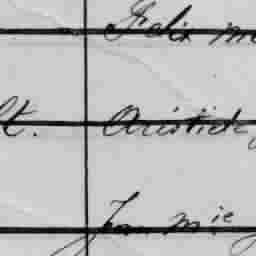 Felix
t. Aristide
Jean M.ie